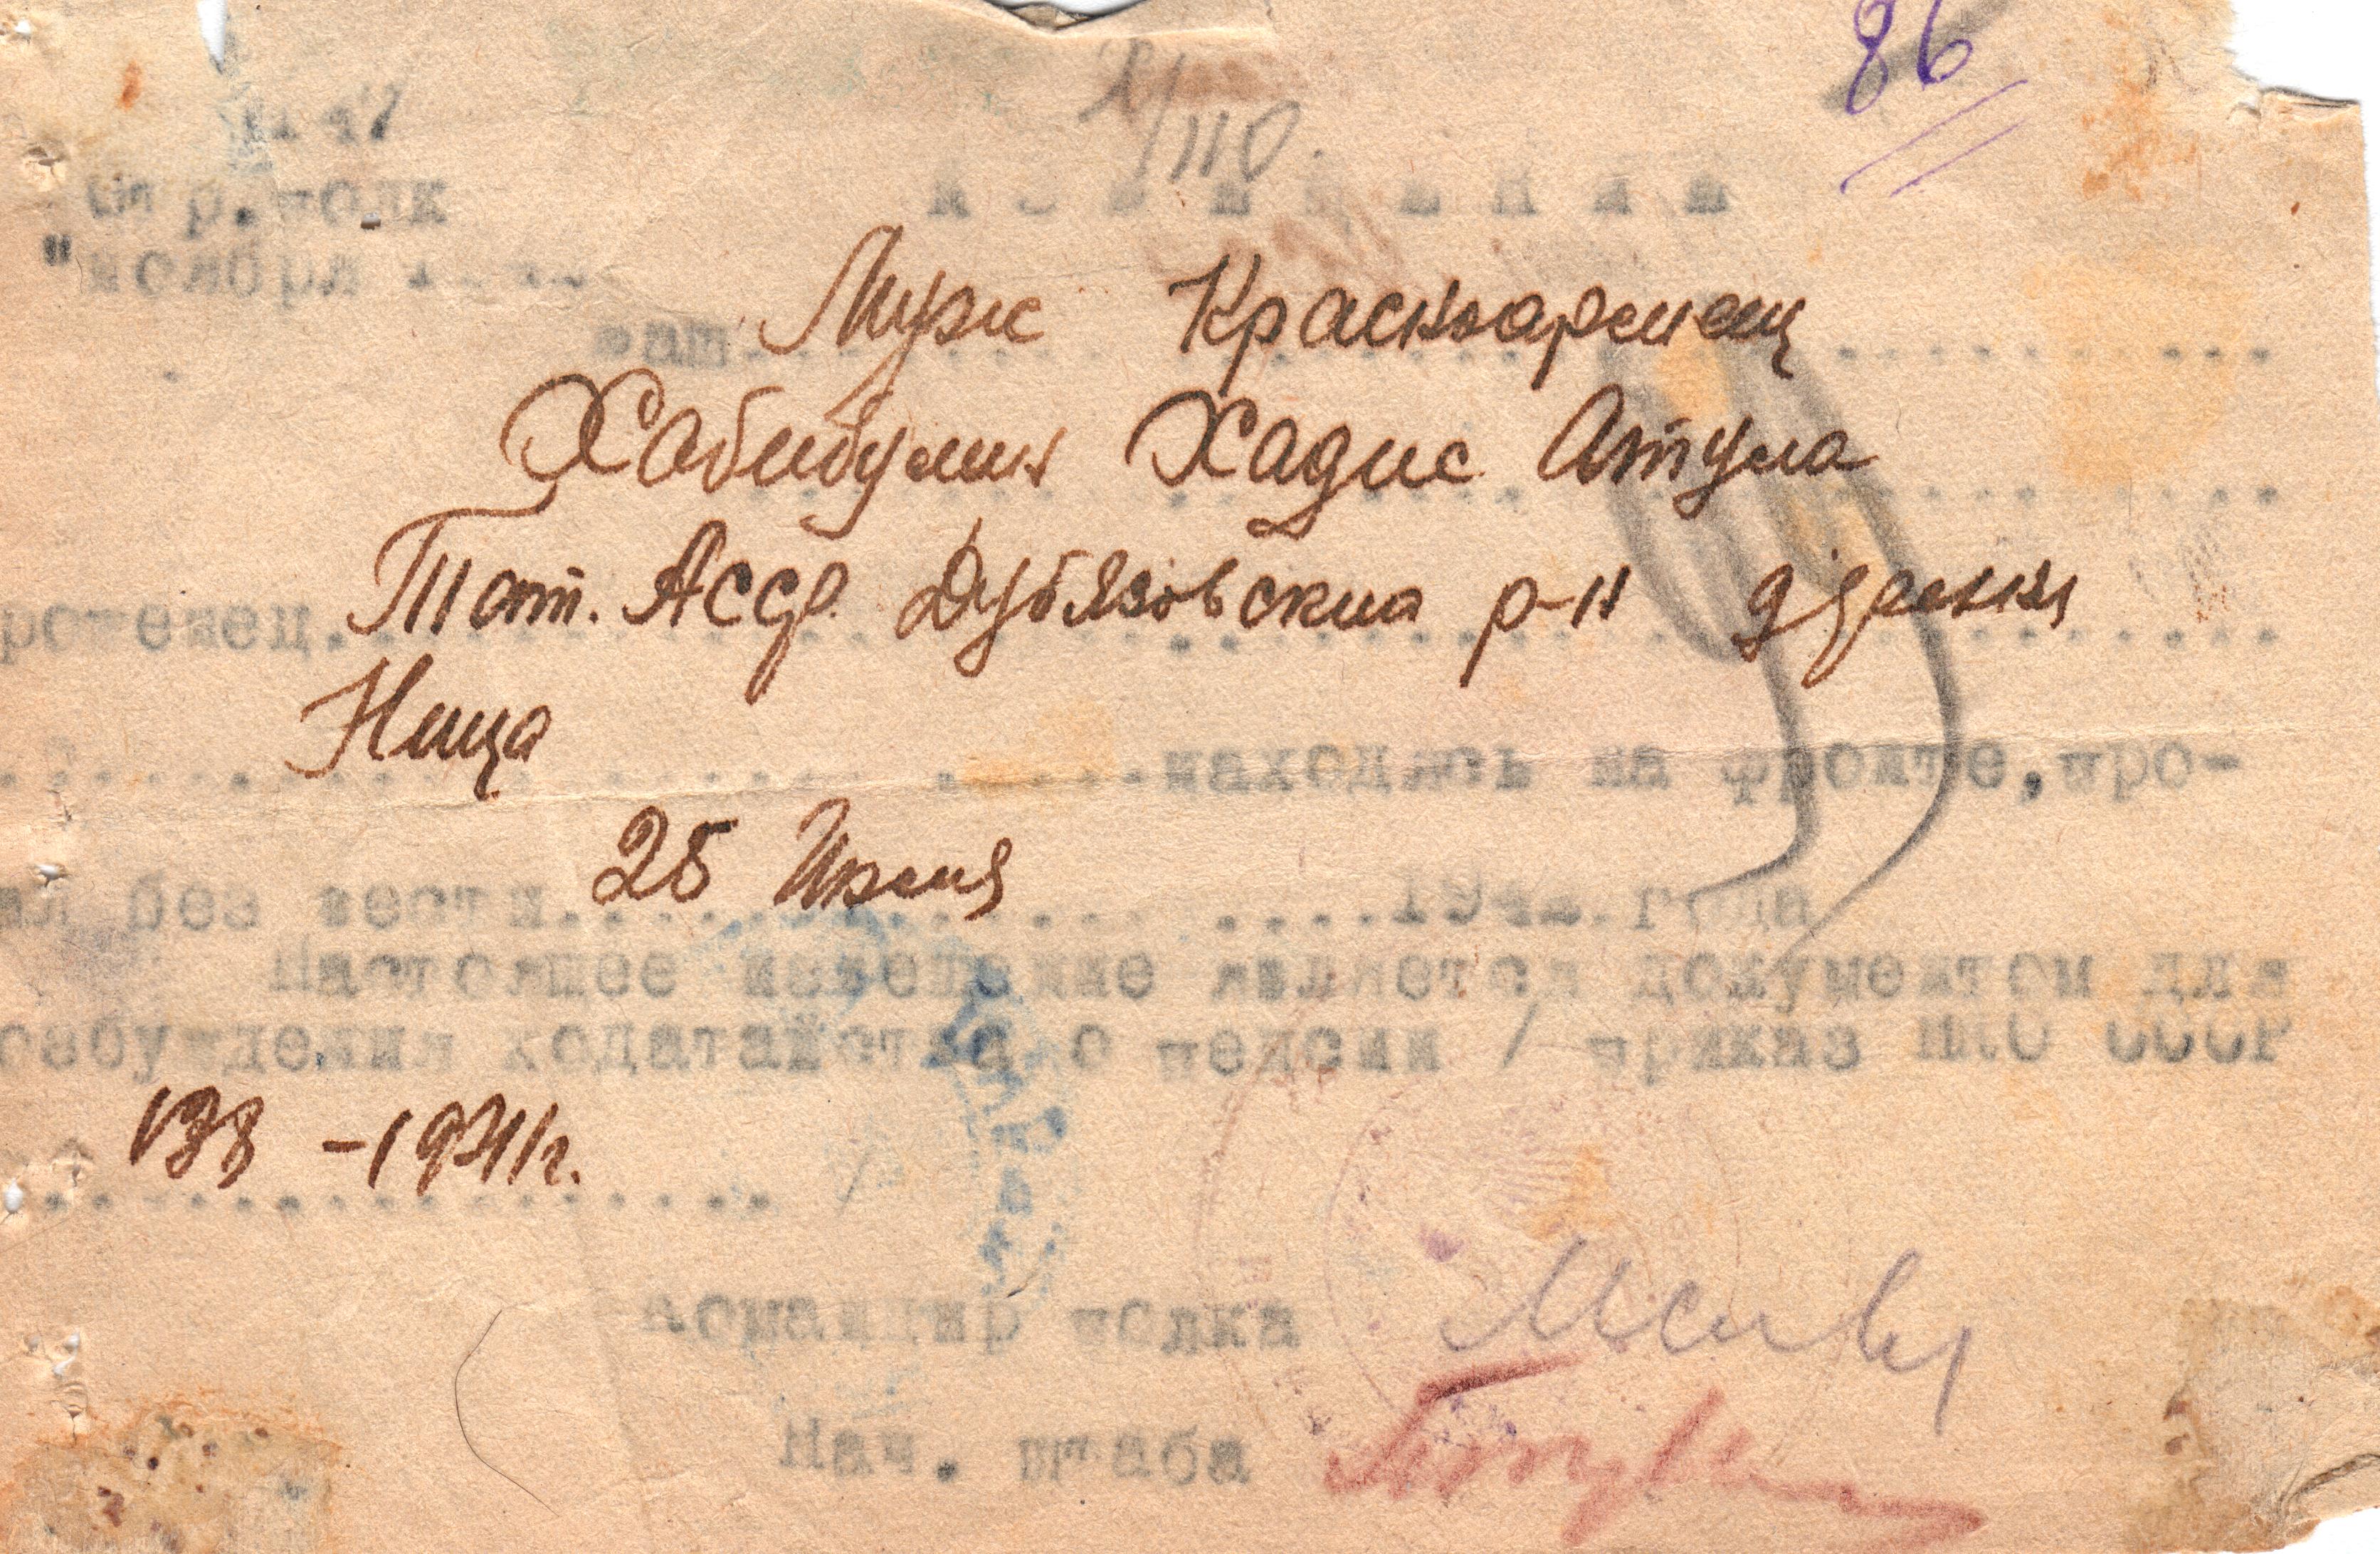 86
/110
р. полк
И З В Е Щ Е Н И Е
"ноября ....
Ваш Муж Красноармеец
Хабибулин Хадис Атула
Тат. АССР. Дубязовскиа р-н
ротенец
Ница
находясь на фронте, про-
ал без вести 25 Июня 194 года
Настоящее извещение является документом для
озбуждения ходатайства о пенсии / приказ НКО СССР
138 - 1941г. /
Командир полка
Нач. штаба